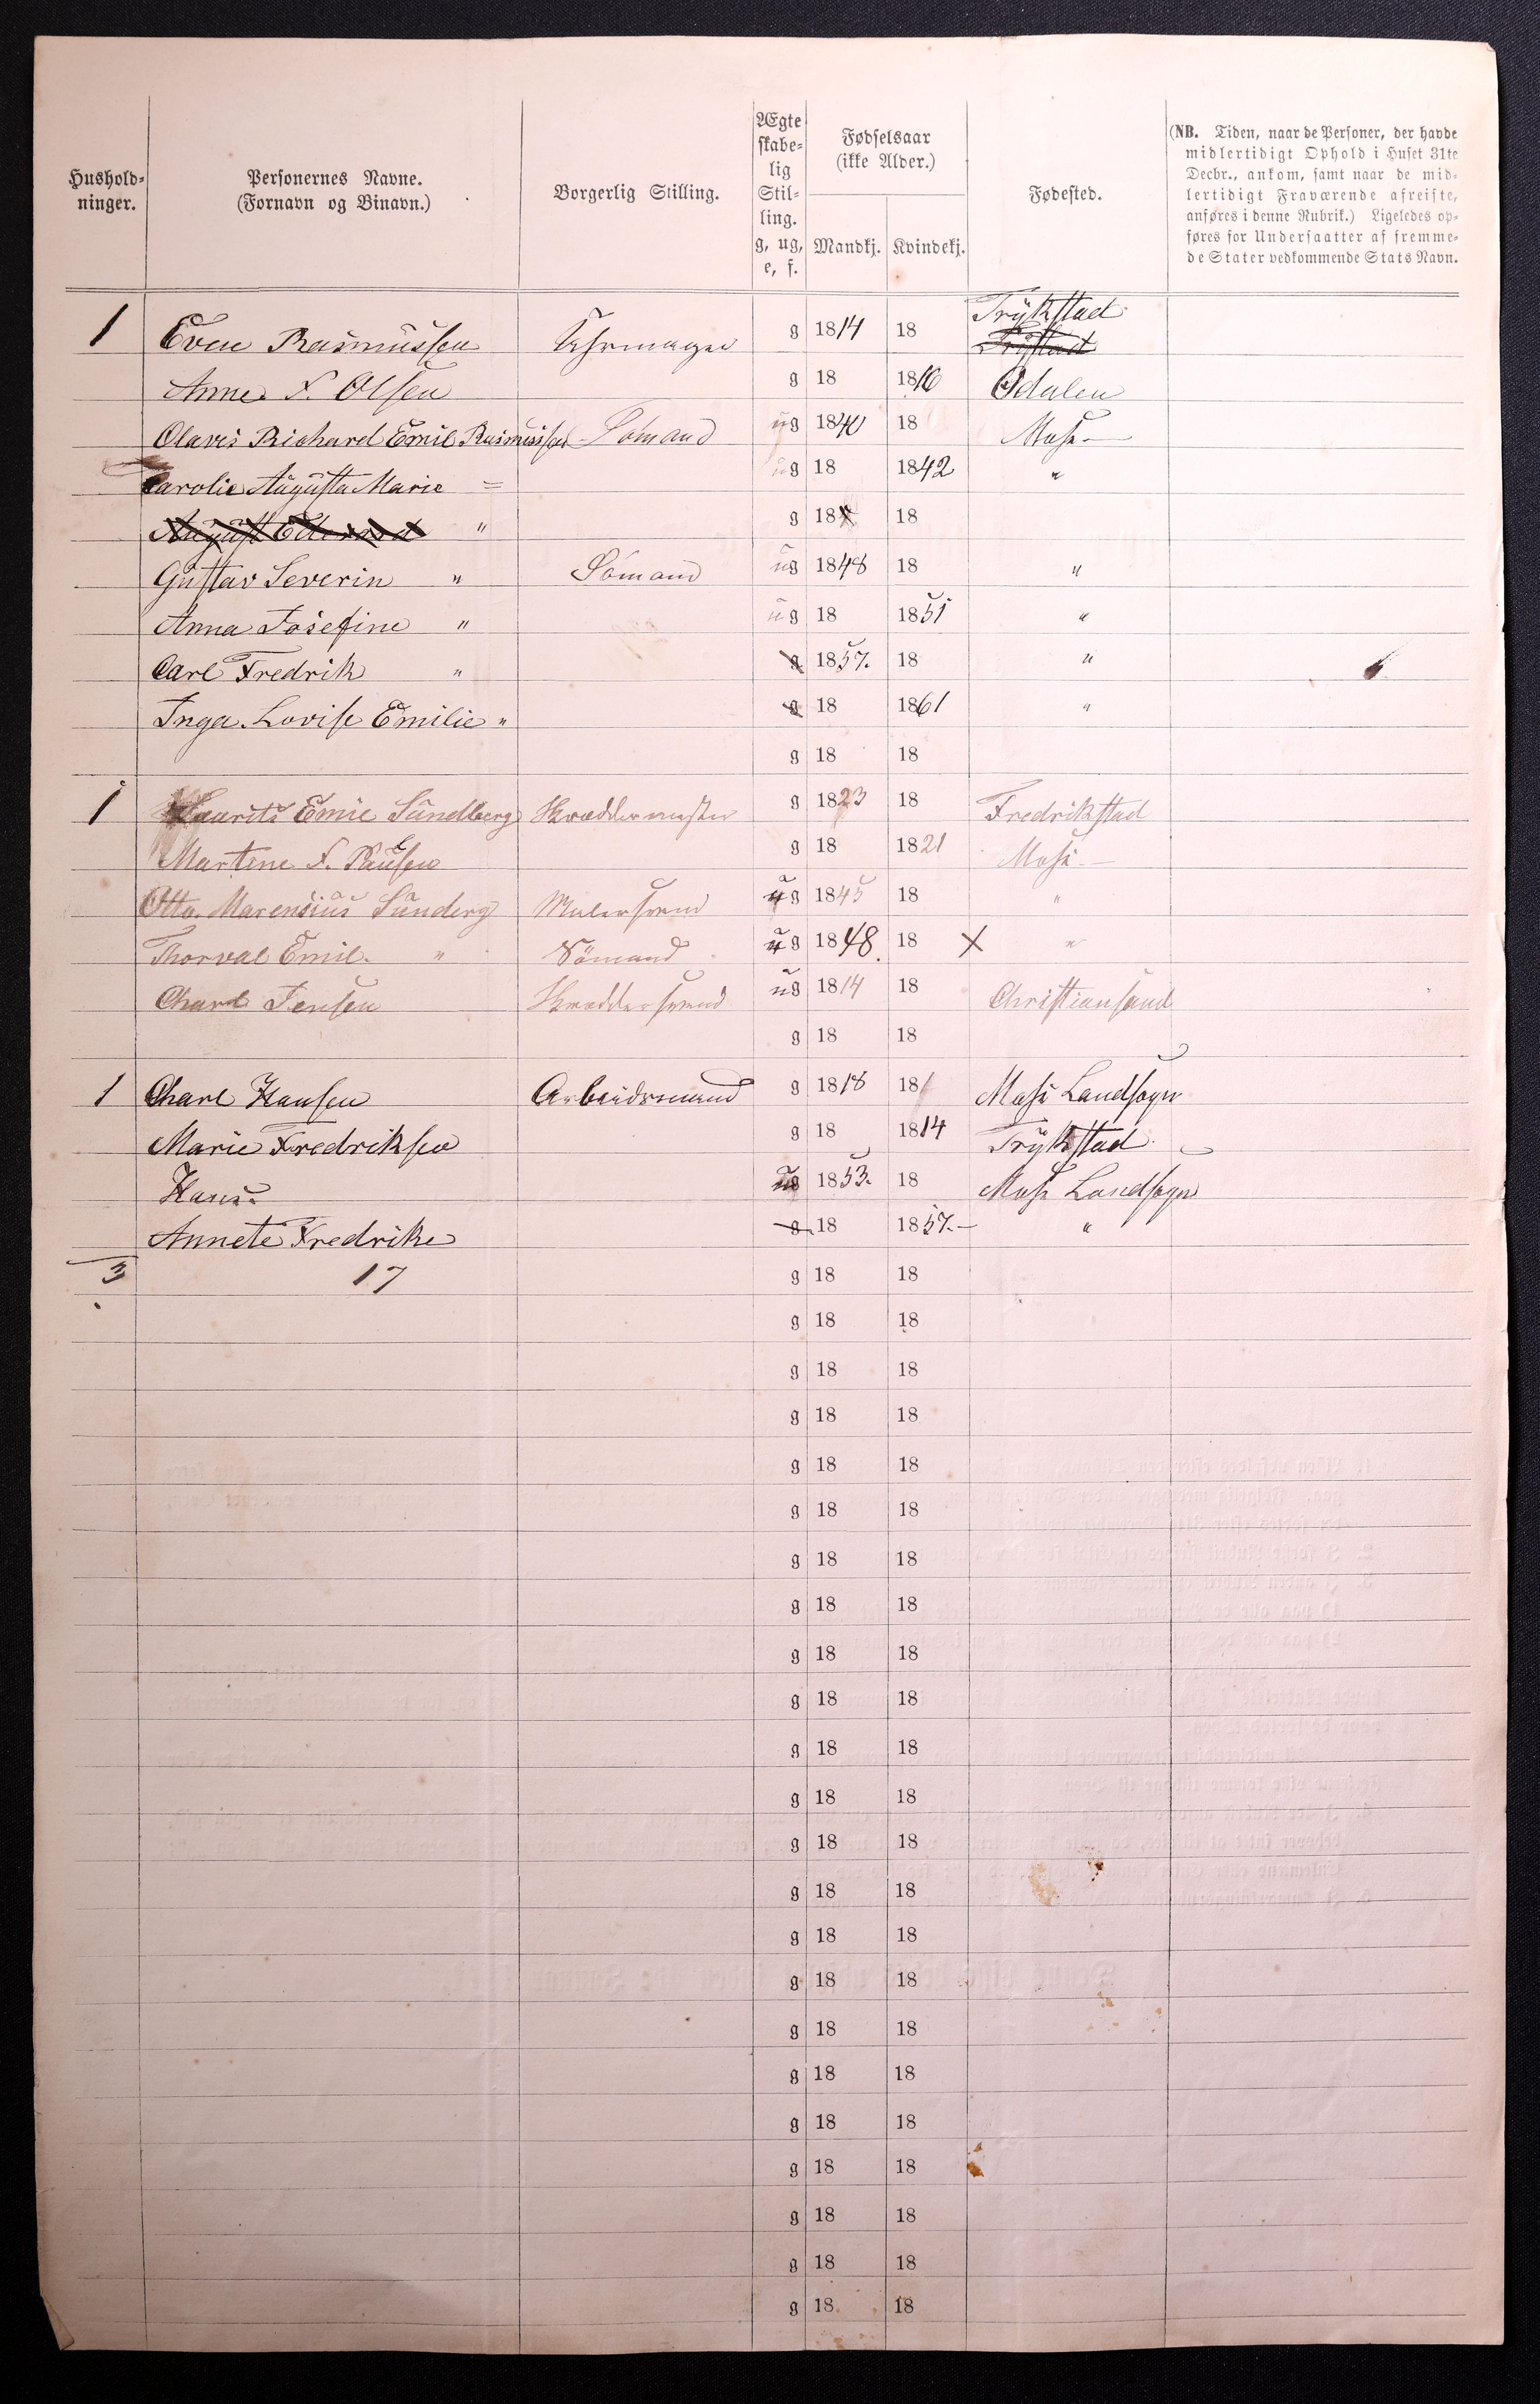 Hushold-
ninger.
Personernes Navne.
(Fornavn og Binavn.)
Borgerlig Stilling.
Ægte
skabe-
lig
Stil-
ling.
g, ug,
e, f.
Fødselsaar
(ikke Alder.)
Mandkj. Kvindekj.
Fødested.
(NB. Tiden, naar de Personer, der havde
midlertidigt Ophold i Huset 31te
Decbr., ankom, samt naar de mid-
lertidigt Fraværende afreiste,
anføres i denne Rubrik.) Ligeledes op-
føres for Undersaatter af fremme-
de Stater vedkommende Stats Navn.
Trykstad
1 Even Rasmussen Uhrmager g 1814 18 Trøstad
Anne F. Olsen g 18 1816 Odalen
Olavis Richard Emil Rasmussen Sömand ug 1840 18 Moss
Carolie Augusta Marie = ug 18 1842 "
August Edevard " g 184 18
Gustav Severin " Sömand ug 1848 18 "
Anna Josefine " ug 18 1851 "
Carl Fredrik " g 1857. 18 "
Inga Lovise Emilie " g 18 1861 "
g 18 18
1 Laurits Emil Sundberg Skræddermester g 1823 18 Fredrikstad
Martine F. Paulsen g 18 1821 Moss
Otto Marensius Sunderg Malersvend ug 1845 18 "
Thorval Emil. " Sömand ug 1848. 18 X "
Charl Jensen Skræddersvend ug 1814 18 Christiansand
g 18 18
1 Charl Hansen Arbeidsmand g 1818 181 Moss Landsogn
Marie Fredriksen g 18 1814 Trykstad
Hans. ug 1853. 18 Moss Landsogn
Annete Fredrike g 18 1857. "
3 17 g 18 18
g 18 18
g 18 18
g 18 18
g 18 18
g 18 18
g 18 18
g 18 18
g 18 18
g 18 18
g 18 18
g 18 18
g 18 18
g 18 18
g 18 18
g 18 18
g 18 18
g 18 18
g 18 18
g 18 18
g 18 18
g 18 18
g 18 18